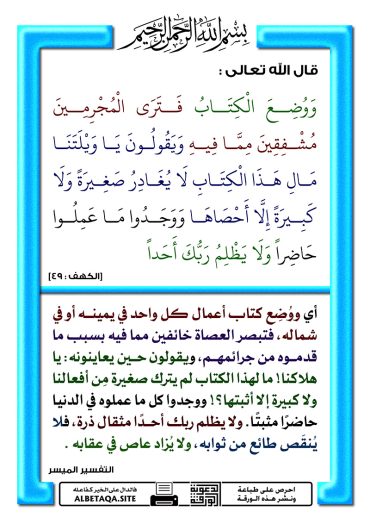 بسم الله الرحمن الرحيم
قال الله تعالى :
وَوُضِعَ الْكِتَابُ فَتَرَى الْمُجْرِمِينَ
مُشْفِقِينَ مِمَّا فِيهِ وَيَقُولُونَ يَا وَيْلَتَنَا
مَالِ هَذَا الْكِتَابِ لَا يُغَادِرُ صَغِيرَةً وَلَا
كَبِيرَةً إِلَّا أَحْصَاهَا وَوَجَدُوا مَا عَمِلُوا
حَاضِراً وَلَا يَظْلِمُ رَبُّكَ أَحَداً
[الكهف : ٤٩]
أي ووُضِع كتاب أعمال كل واحد في يمينه أو في
شماله، فتبصر العصاة خائفين مما فيه بسبب ما
قدموه من جرائمهم، ويقولون حين يعاينونه: يا
هلاكنا! ما لهذا الكتاب لم يترك صغيرة مِن أفعالنا
ولا كبيرة إلا أثبتها؟! ووجدوا كل ما عملوه في الدنيا
حاضرًا مثبتًا. ولا يظلم ربك أحدًا مثقال ذرة، فلا
يُنقَص طائع من ثوابه، ولا يُزاد عاص في عقابه .
التفسير الميسر
احرص على طباعة
ونشر هذه الورقة
لدعوته
الورقة
فالدال على الخير كفاعله
ALBETAQA.SITE